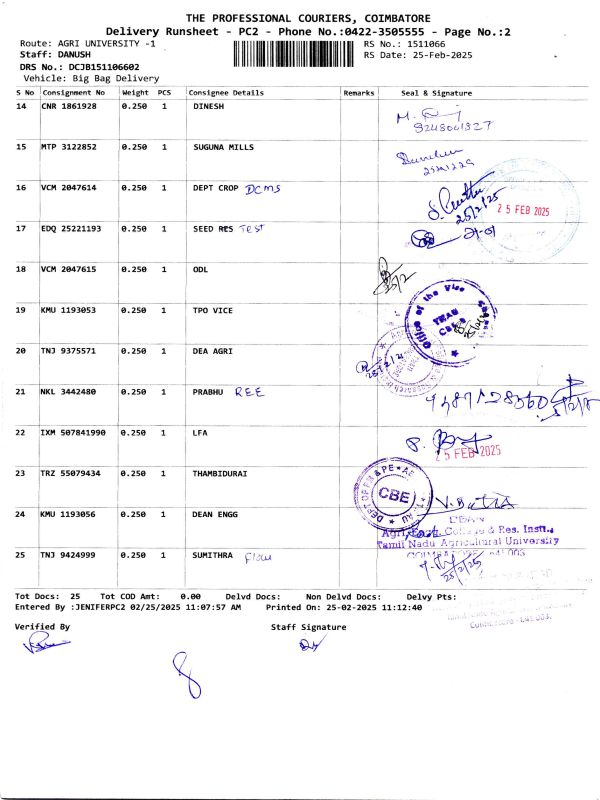 THE PROFESSIONAL COURIERS, COIMBATORE
Delivery Runsheet - PC2 - Phone No.:0422-3505555 - Page No.:2
Route: AGRI UNIVERSITY -1 RS No.: 1511066
Staff: DANUSH RS Date: 25-Feb-2025
DRS No.: DCJB151106602
Vehicle: Big Bag Delivery
S No Consignment No Weight PCS Consignee Details Remarks Seal & Signature
14 CNR 1861928 0.250 1 DINESH
15 MTP 3122852 0.250 1 SUGUNA MILLS
16 VCM 2047614 0.250 1 DEPT CROP DCMS
25/2/25
25 FEB 2025
17 EDQ 25221193 0.250 1 SEED RES Test
18 VCM 2047615 0.250 1 ODL
19 KMU 1193053 0.250 1 TPO VICE
Office of the Vice
TNAU
20 TNJ 9375571 0.250 1 DEA AGRI
21 NKL 3442480 0.250 1 PRABHU REE
22 IXM 507841990 0.250 1 LFA
25 FEB 2025
23 TRZ 55079434 0.250 1 THAMBIDURAI
CBE
24 KMU 1193056 0.250 1 DEAN ENGG
DEAN
Agri. Engg. College & Res. Instt.,
Tamil Nadu Agricultural University
COIMBATORE - 641 003
25 TNJ 9424999 0.250 1 SUMITHRA Flow
25/2/25
Tot Docs: 25 Tot COD Amt: 0.00 Delvd Docs: Non Delvd Docs: Delvy Pts:
Entered By :JENIFERPC2 02/25/2025 11:07:57 AM Printed On: 25-02-2025 11:12:40
Verified By Staff Signature